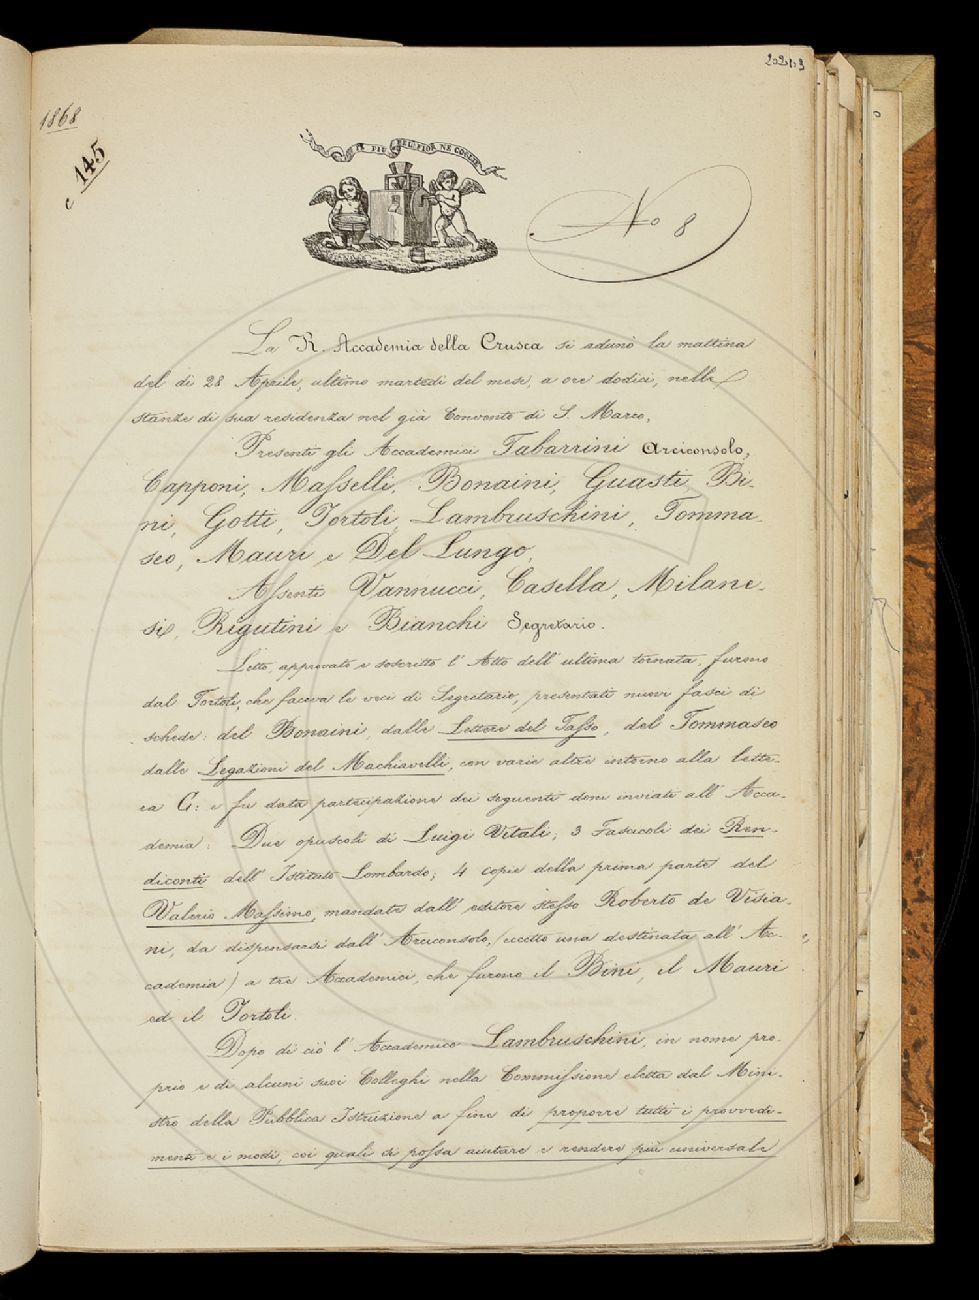 1868
c 145
IL PIÙ BEL FIOR NE COGLIE
No 8
La R. Accademia della Crusca si adunò la mattina
del dì 28 Aprile, ultimo martedì del mese, a ore dodici, nelle
stanze di sua residenza nel già Convento di S. Marco.
Presenti gli Accademici Tabarrini Arciconsolo,
Capponi, Masselli, Bonaini, Guasti, Bi-
ni, Gotti, Tortoli, Lambruschini, Tomma-
seo, Mauri e Del Lungo.
Assenti Vannucci, Casella, Milane-
si, Rigutini e Bianchi Segretario.
Letto approvato e soscritto l'Atto dell'ultima tornata, furono
dal Tortoli, che faceva le veci di Segretario, presentati nuovi fasci di
schede: del Bonaini, dalle Lettere del Tasso, del Tommaseo
dalle Legazioni del Machiavelli, con varie altre intorno alla lette-
ra C: e fu data partecipazione dei seguenti doni inviati all'Acca-
demia: Due opuscoli di Luigi Vitali; 3 Fascicoli dei Ren-
diconti dell'Istituto Lombardo; 4 copie della prima parte del
Valerio Massimo, mandate dall'editore stesso Roberto de Visia-
ni, da dispensarsi dall'Arciconsolo, (eccetto una destinata all'Ac-
cademia) a tre Accademici, che furono il Bini, il Mauri
ed il Tortoli.
Dopo di ciò l'Accademico Lambruschini, in nome pro-
prio e di alcuni suoi Colleghi nella Commissione eletta dal Mini-
stro della Pubblica Istruzione a fine di proporre tutti i provvedi-
menti e i modi, coi quali si possa aiutare e rendere più universale